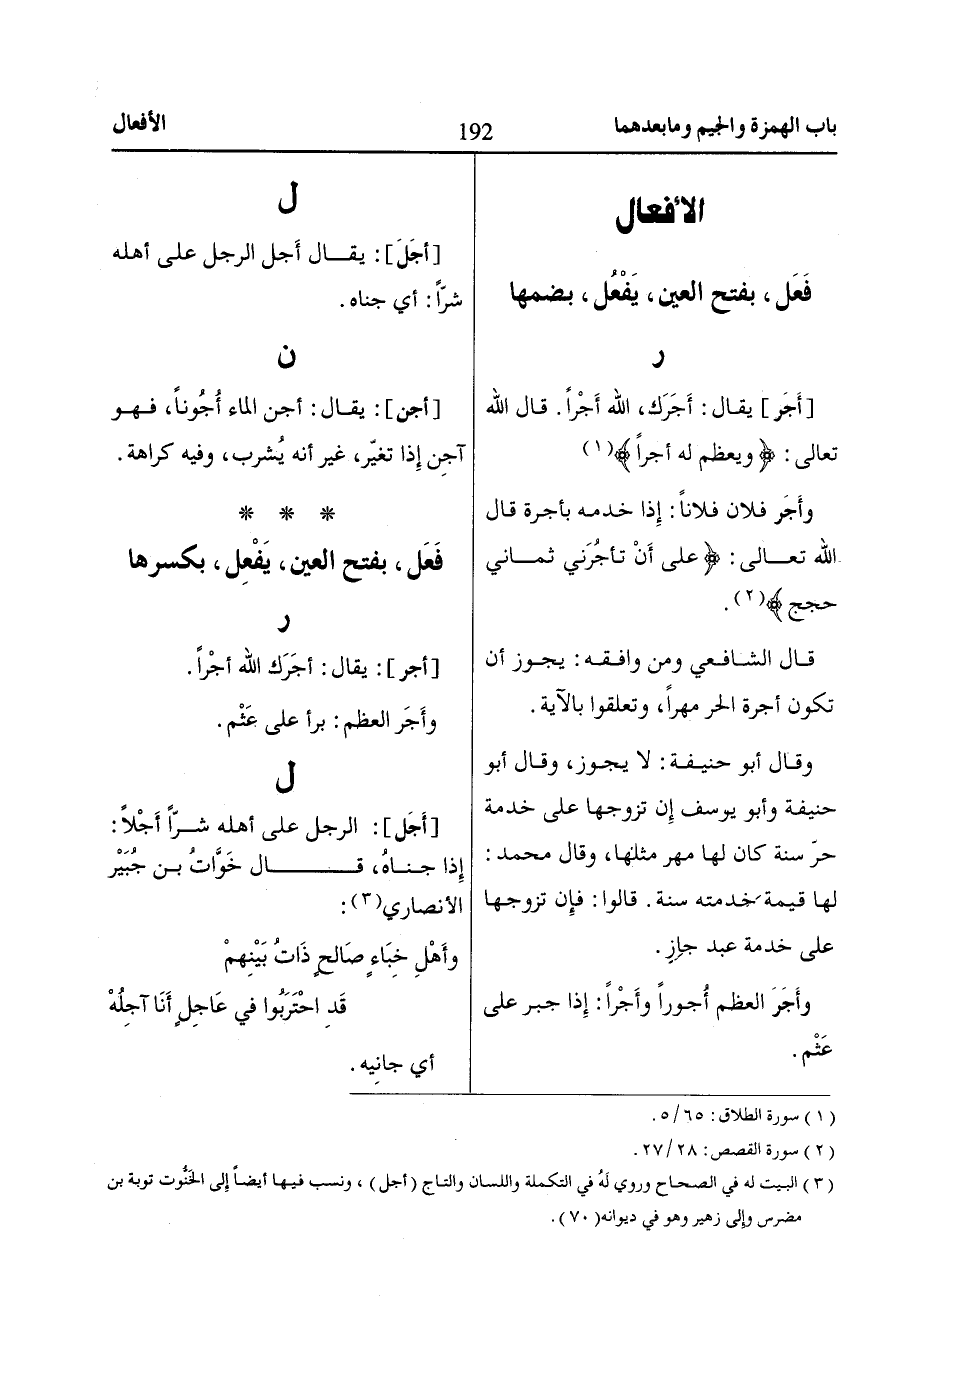 باب الهمزة والجيم ومابعدهما
192
الأفعال
الأفعال
فَعَل، بفتح العين، يَفْعُل، بضمها
ر
[أَجَر] يقال: أَجَرَك، الله أَجْراً. قال الله
تعالى: ﴿ويعظم له أجراً﴾(١)
وأَجَر فلان فلاناً: إذا خدمه بأجرة قال
الله تعالى: ﴿على أَنْ تأجُرَني ثماني
حجج﴾(٢).
قال الشافعي ومن وافقه: يجوز أن
تكون أجرة الحر مهراً، وتعلقوا بالآية.
وقال أبو حنيفة: لا يجوز، وقال أبو
حنيفة وأبو يوسف إن تزوجها على خدمة
حرّ سنة كان لها مهر مثلها، وقال محمد:
لها قيمة خدمته سنة. قالوا: فإن تزوجها
على خدمة عبد جازِ.
وأَجَرَ العظم أُجوراً وأَجْراً: إذا جبر على
عَثْم.
ل
[أجَلَ]: يقال أَجل الرجل على أهله
شرّاً: أي جناه.
ن
[أجن]: يقال: أجن الماء أُجُوناً، فهو
آجن إذا تغيّر، غير أنه يُشرب، وفيه كراهة.
* * *
فَعَل، بفتح العين، يَفْعِل، بكسرها
ر
[أجر]: يقال: أجَرَك الله أجْراً.
وأَجَر العظم: برأ على عَثْم.
ل
[أَجَل]: الرجل على أهله شرّاً أَجْلاً:
إذا جناهُ، قال خَوَّاتُ بن جُبَيْر
الأنصاري(٣):
وأَهْلِ خبَاءٍ صَالحٍ ذَاتُ بَيْنِهمْ
قَدِ احْتَرَبُوا في عَاجِلٍ أَنَا آجلُهْ
أي جانِيه.
(١) سورة الطلاق: ٥/٦٥.
(٢) سورة القصص: ٢٧/٢٨.
(٣) البيت له في الصحاح وروي لَهُ في التكملة واللسان والتاج (أجل)، ونسب فيها أيضاً إلى الخنُّوت توبة بن
مضرس وإلى زهير وهو في ديوانه(٧٠).